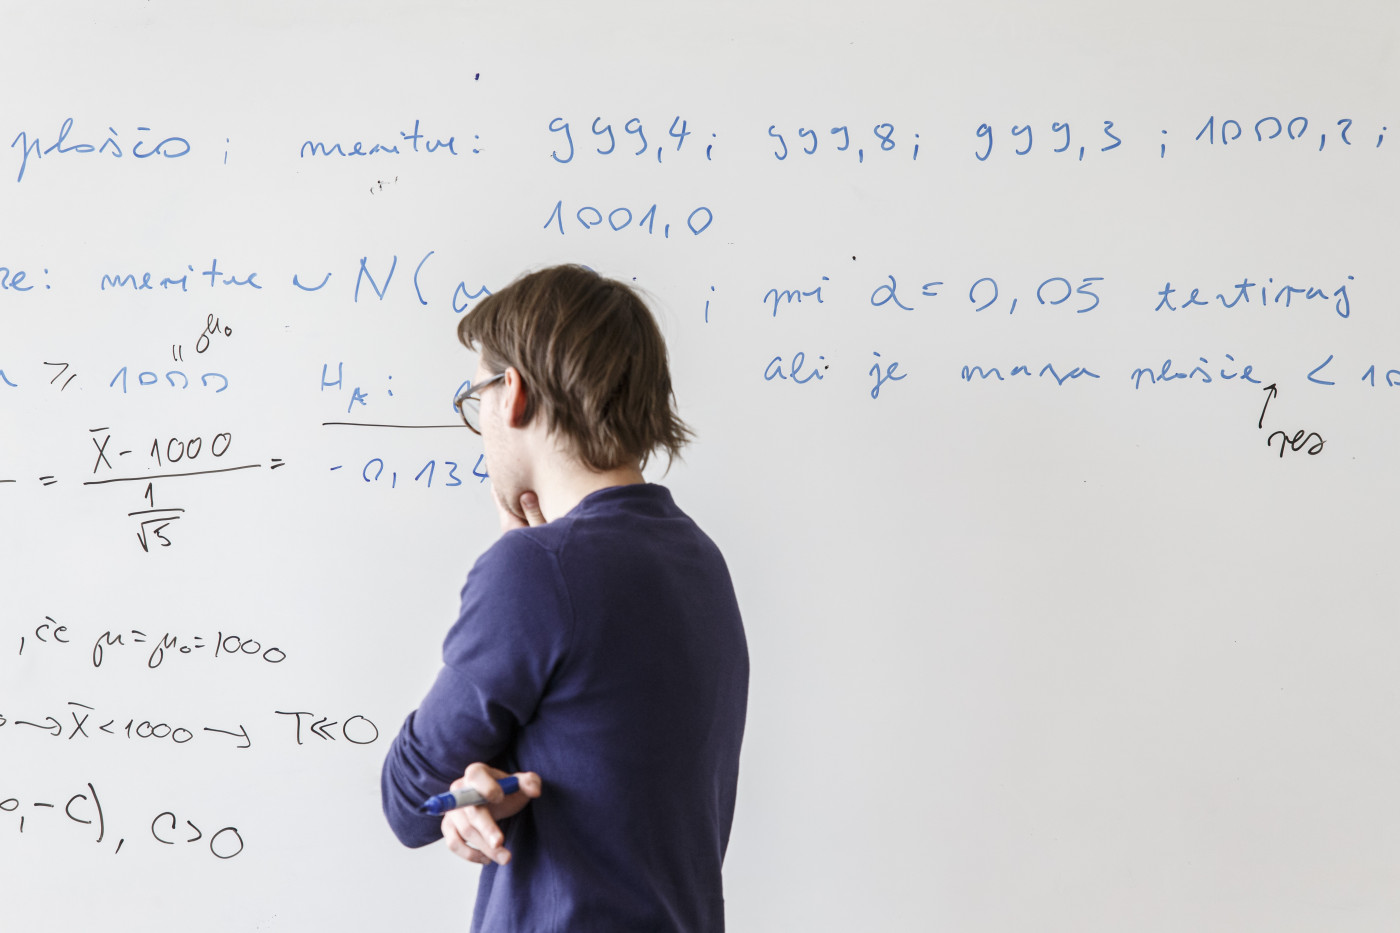 ploščo ; meritve: 999,4 ; 999,8 ; 999,3 ; 1000,2 ;
1001,0
meritve ~ N(μ ; pri α = 0,05 testiraj
μ₀
"
≥ 1000 H_A : ali je masa plošče < 10
res
= (X̄ - 1000) / (1/√5) = -0,134
, če μ = μ₀ = 1000
→ X̄ < 1000 → T ≪ 0
, -C), C > 0